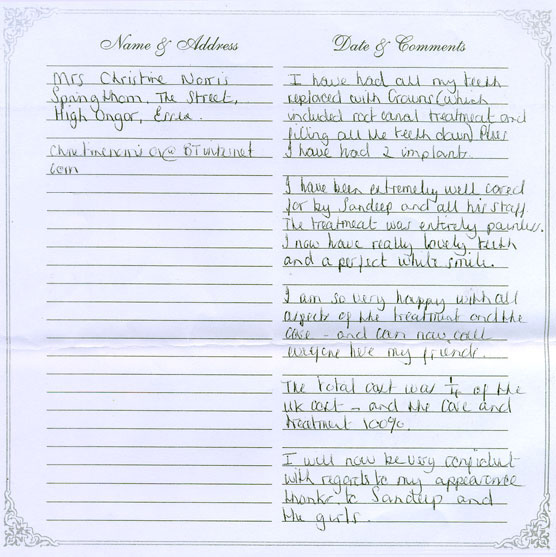 Name & Address
Mrs Christine Norris
Springthorn, The Street,
High Ongar, Essex.
@BTinternet
com
Date & Comments
I have had all my teeth
replaced with Crowns (which
included root canal treatment and
filing all the teeth down) Plus
I have had 2 implants.
I have been extremely well cared
for by Sandeep and all his staff
The treatment was entirely painless.
I now have really lovely teeth
and a perfect white smile.
I am so very happy with all
aspects of the treatment and the
care - and can now call
everyone here my friends.
The total cost was 1/4 of the
UK cost - and the care and
treatment 100%.
I will now be very confident
with regards to my appearance
thanks to Sandeep and
the girls.